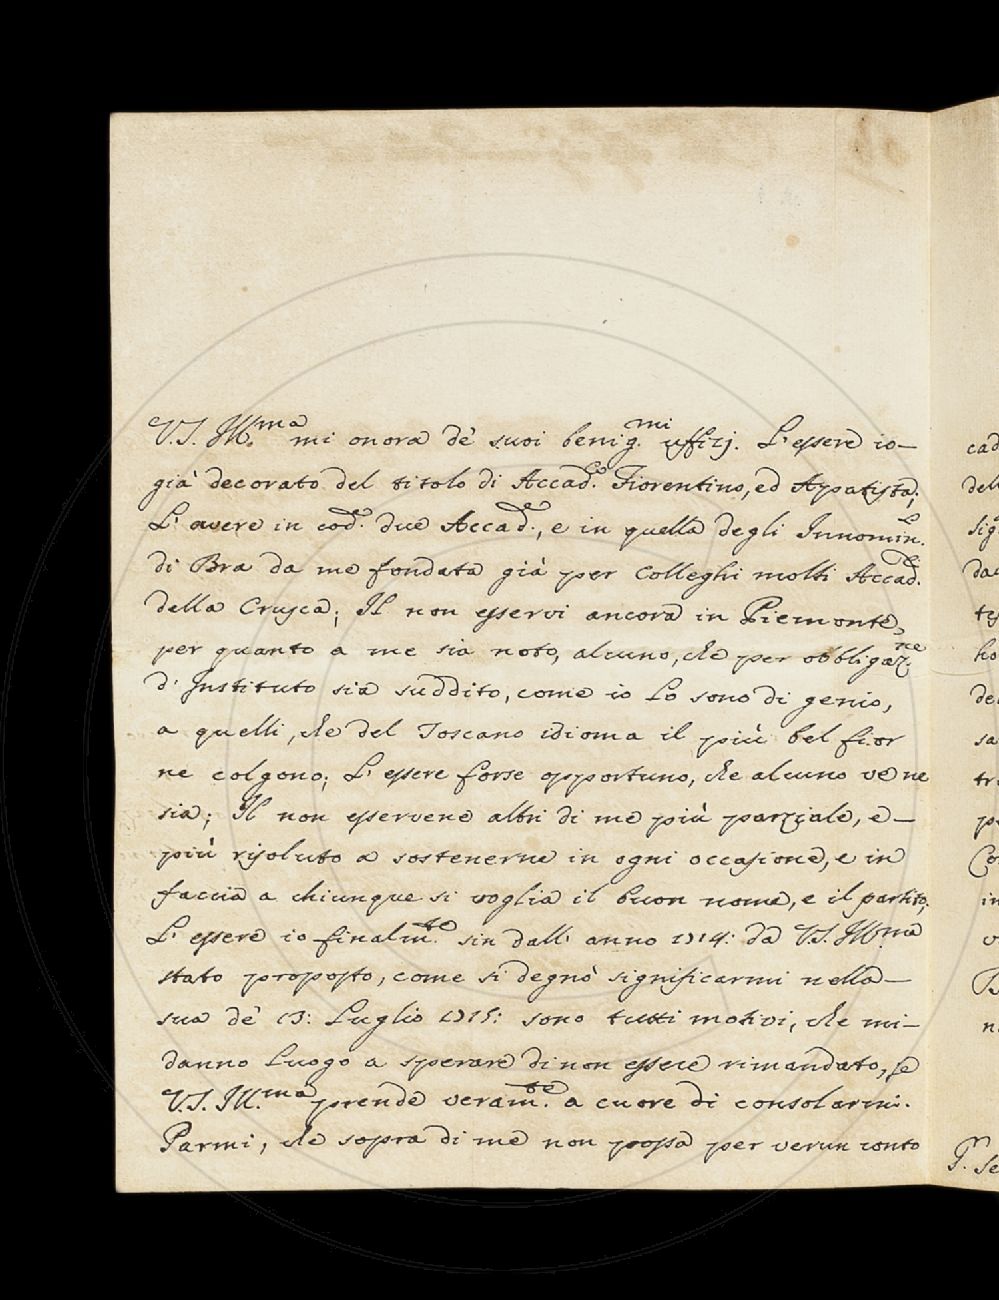 V.S. Ill.ma mi onora de' suoi benig.mi uffizj. L'essere io
già decorato del titolo di Accad.co Fiorentino, ed Apatista;
L' avere in cod.e due Accad.e, e in quella degli Innomin.
di Bra da me fondata già per Colleghi molti Accad.
della Crusca; Il non esservi ancora in Piemonte,
per quanto a me sia noto, alcuno, che per obbligaz.ne
d' Instituto sia suddito, come io lo sono di genio,
a quelli, che del Toscano idioma il più bel fior
ne colgono; L' essere forse opportuno, che alcuno ve ne
sia; Il non esservene altri di me più parziale, e
più risoluto a sostenerne in ogni occasione, e in
faccia a chiunque si voglia il buon nome, e il partito;
L' essere io finalm.te sin dall' anno 1714: da V.S. Ill.ma
stato proposto, come si degnò significarmi nella
sua de' 13: Luglio 1715: sono tutti motivi, che mi
danno luogo a sperare di non essere rimandato, se
V.S. Ill.ma prende veram.te a cuore di consolarmi.
Parmi, che sopra di me non possa per verun conto